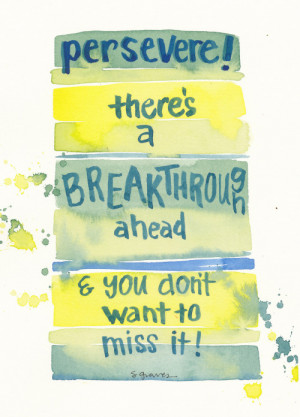 persevere!
there's
a
BREAKTHROUGH
ahead
& you don't
want to
miss it!
s graves